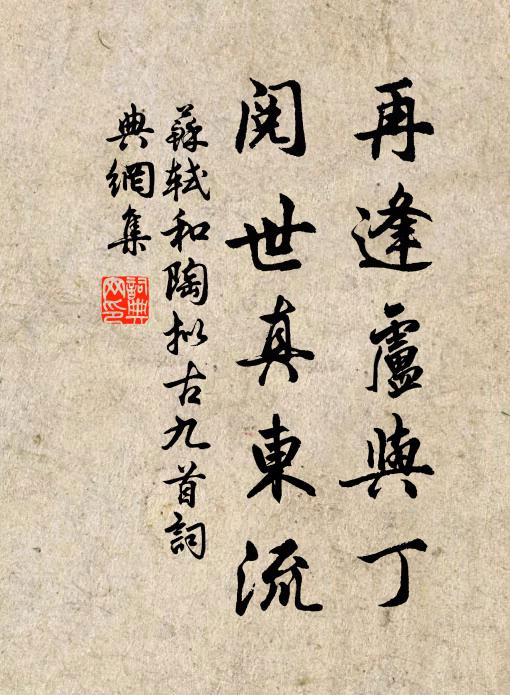 再逢盧與丁
閱世真東流
蘇軾和陶拟古九首詞
典網集
詞典
网印